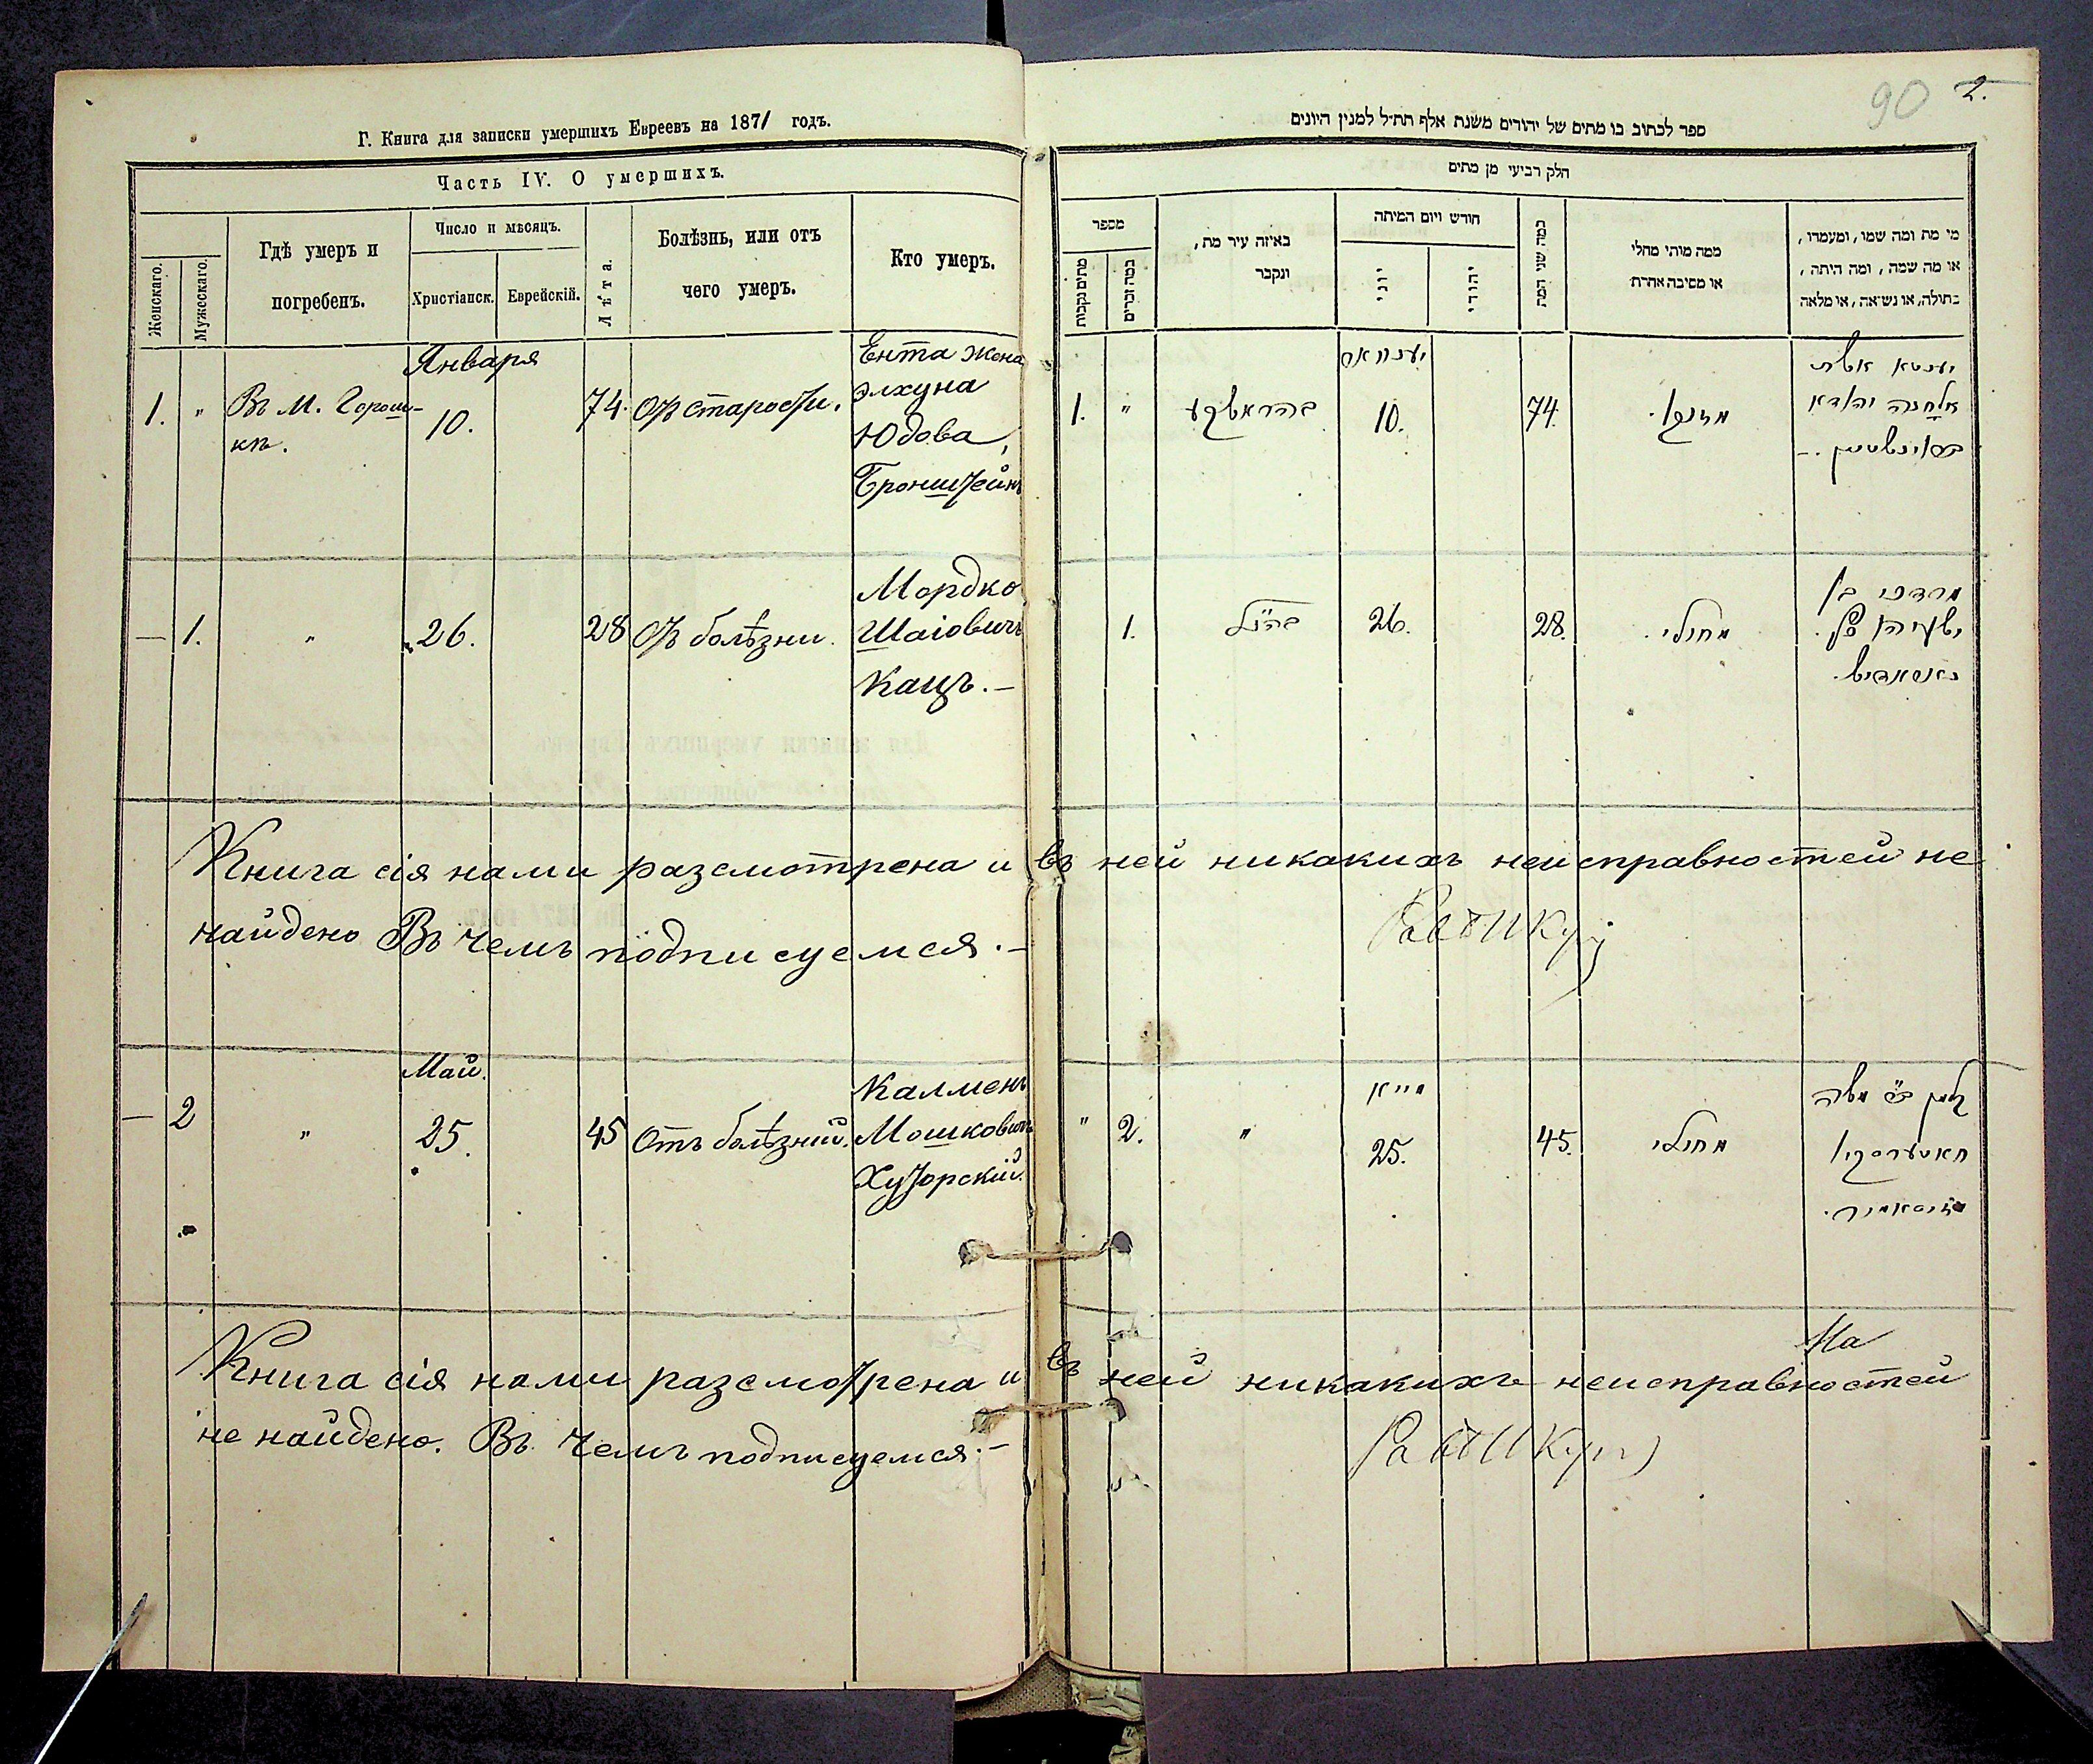 Г. Книга для записки умершихъ Евреевъ на 1871 годъ.
Часть IV. О умершихъ.
Женскаго.
Мужескаго.
Гдѣ умеръ и
погребенъ.
Число и мѣсяцъ.
Христіанск.
Еврейскій.
Лѣта.
Болѣзнь, или отъ
чего умеръ.
Кто умеръ.
Января
1. " Въ М. Горош-
кѣ.
10.
74. Отъ старости.
Ента жена
Элхуна
Юдова,
Бронштейнъ
— 1. " 26. 28 Отъ болѣзни.
Мордко
Шаіовичъ
Кацъ.—
Книга сія нами разсмотрена и въ ней никакихъ неисправностей не
найдено Въ чемъ подписуемся.—
Май.
— 2 " 25. 45 Отъ болѣзній.
Калменъ
Мошковичъ
Хуторскій.
Книга сія нами разсмотрена и въ ней никакихъ неисправностей
не найдено. Въ чемъ подписуемся.—
90 2.
ספר לכתוב בו מתים של יהודים משנת אלף תת״ל למנין היונים
חלק רביעי מן מתים
מספר
מתים נקבות
כמה זכרים
באיזה עיר מת,
ונקבר
חודש ויום המיתה
יוני
יהודי
כמה שני המת
ממה מותי מחלי
או מסיבה אחרת
מי מת ומה שמו, ומעמדו,
או מה שמה, ומה היתה,
בתולה, או נשאה, או מלאה
יענוואר
1. " 10. 74. מזקנה.
יענטא אשת
אלחנה יהודא
בראנשטיין.—
1. 26. 28. מחולי.
מרדכי בן
ישעיהו
מייא
" 2. " 25. 45. מחולי
קלמן משה
חאטערסקי